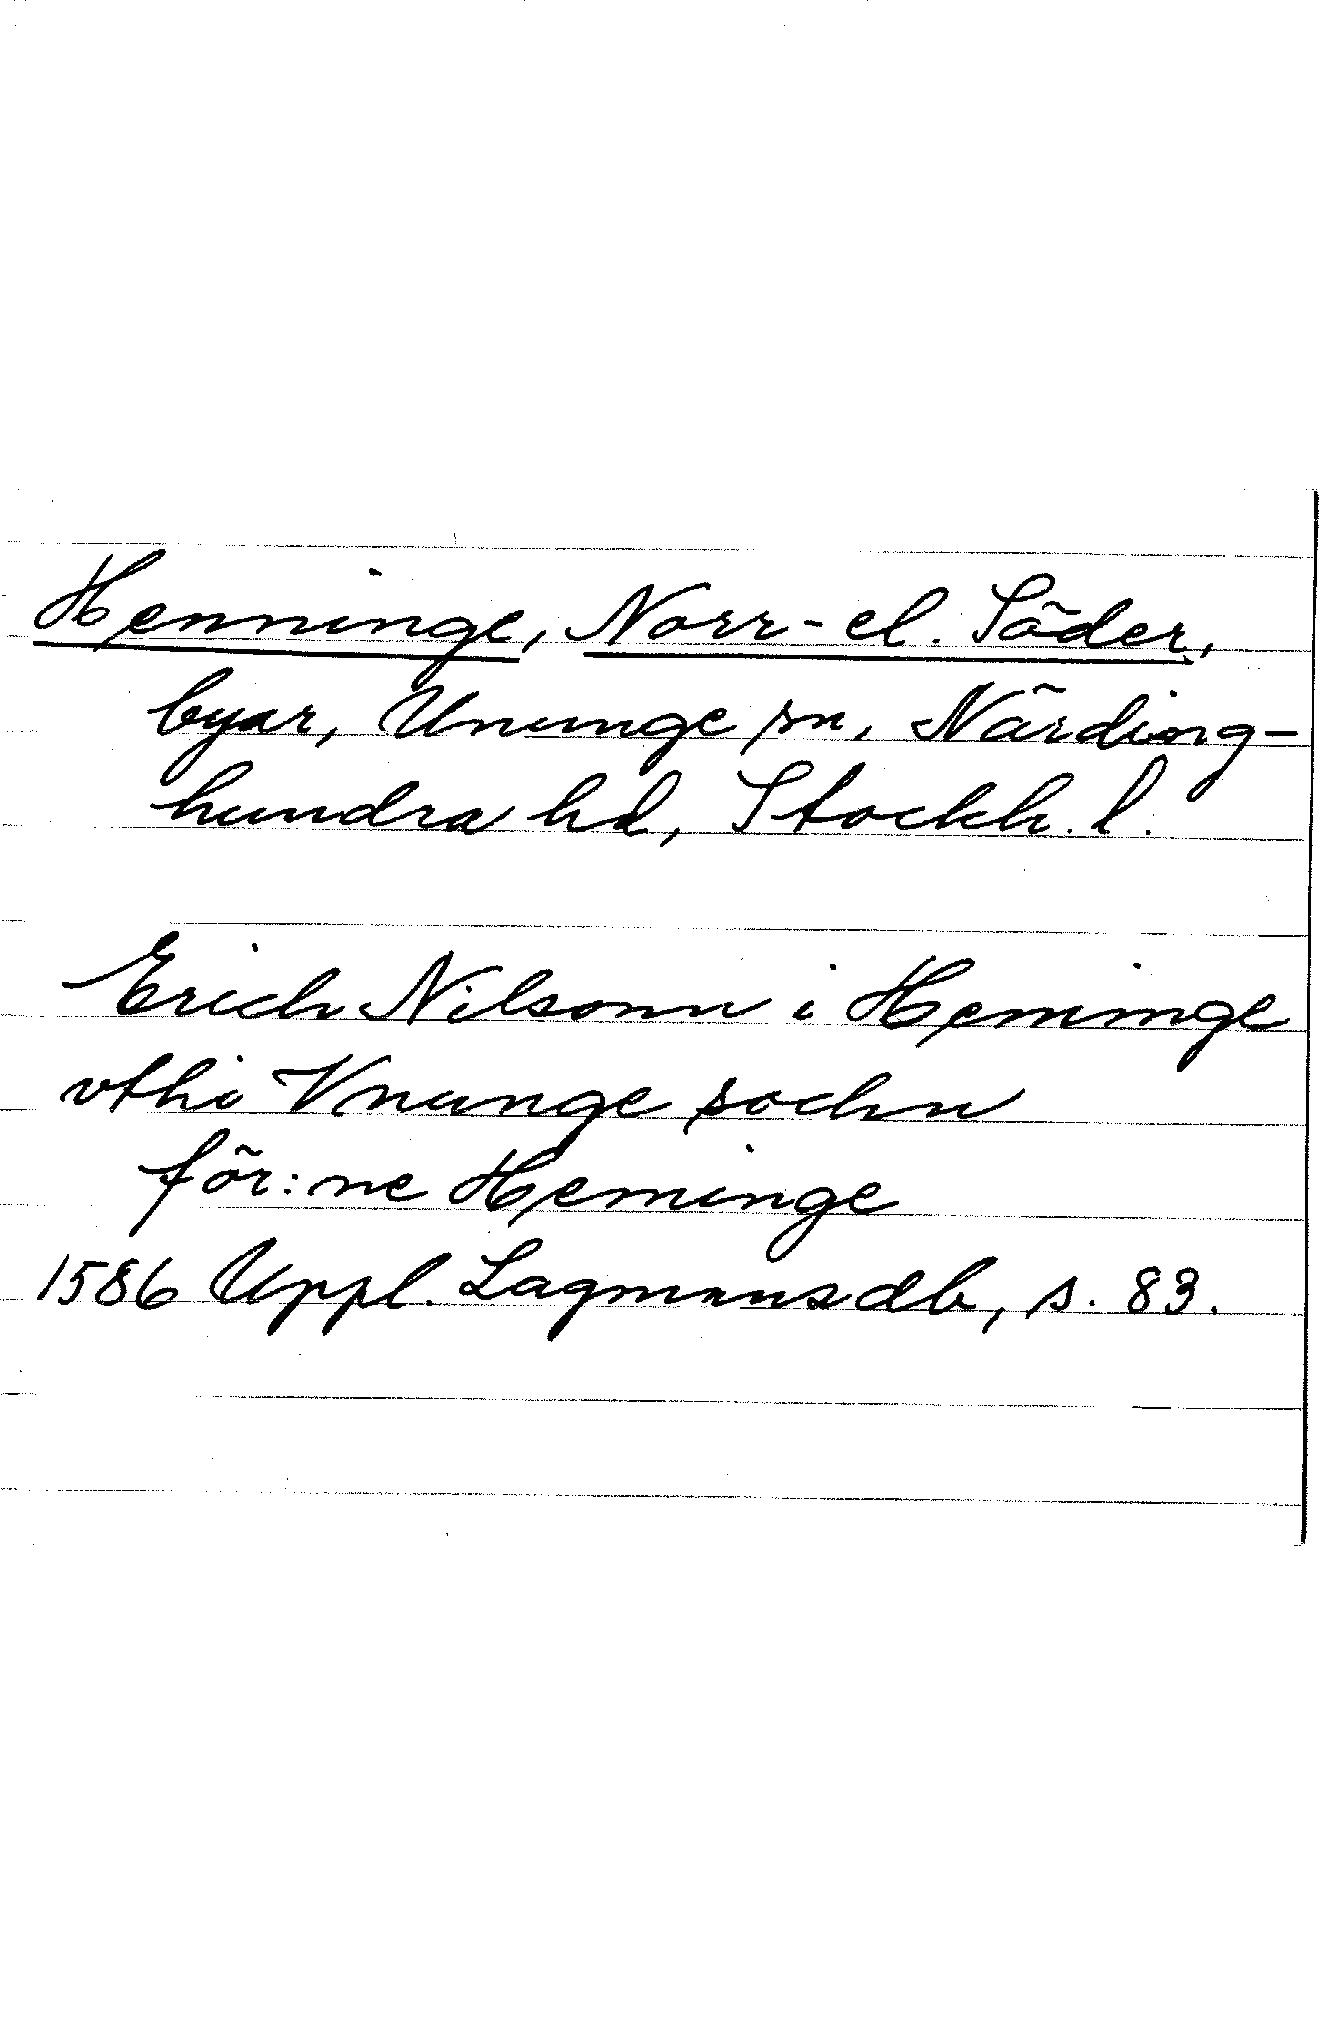 Henninge, Norr- el. Söder,
byar, Ununge sn, Närding-
hundra hd, Stockh. l.
Erich Nilsonn i Heminge
vthi Vnunge sochn
för:ne Heminge
1586 Uppl. Lagmansdb, s. 83.